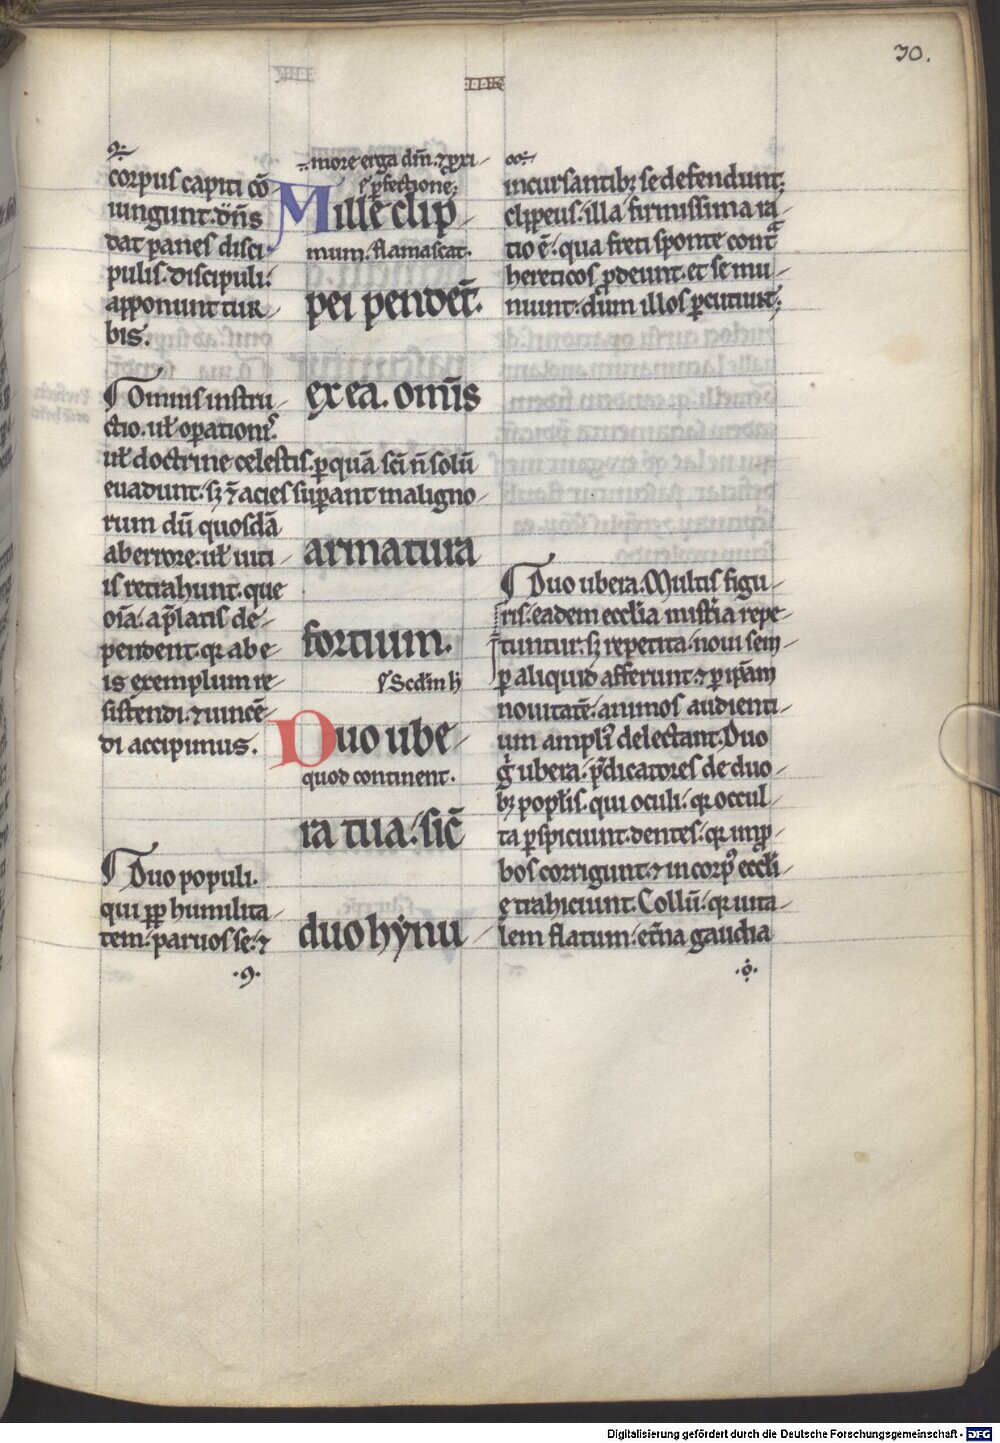 30.
corpus capiti cō
iungunt. dn̄s
dat panes disci
pulis. discipuli
apponunt tur
bis.
Omnis instru
ctio. ul̵ operationis.
ul̵ doctrine celestis. p̱quā sc̄i n̄ solū
evadunt. sꝫ ⁊ acies sup̱ant maligno
rum dū quosdā
ab errore. ul̵ uiti
is retrahunt. que
oīa. a p̄latis de
pendent. qꝛ ab e
is exemplum re
sistendi. ⁊ uincē
di accipimus.
Duo populi.
qui ꝓp̱ humilita
tem. paruos se. ⁊
.9.
more erga dn̄m. ⁊ ꝓxi
p̄fectione;
Mille clip
mum. flamascat.
pei pendēt.
ex ea. om̄is
armatura
fortium.
Scdm h
Duo ube
quod continent.
ra tua. sic̄
duo hẏnu
incursantibꝫ se defendunt;
clippeus. illa firmissima ra
tio ē. qua freti sponte cont̄
hereticos ꝓdeunt. et se mu
niunt. dum illos p̱cutiunt;
Duo ubera. Multis figu
ris. eadem eccl̄ia mist̄ia repe
tuntur. sꝫ repetita. noui sem
p̱ aliquid afferunt. ⁊ p̱ ip̄am
nouitatē. animos audienti
um ampli᾽ delectant. Duo
gͥ ubera. p̄dicatores de duo
bꝫ popl̄is. qui oculi. qꝛ occul
ta p̱spiciunt. dentes. qꝛ impͥ
bos corrigunt. ⁊ in corp᾽ eccl̄i
ę trahiciunt. Collū. qꝛ uita
lem flatum. et̄na gaudia
.o.
Digitalisierung gefördert durch die Deutsche Forschungsgemeinschaft - DFG